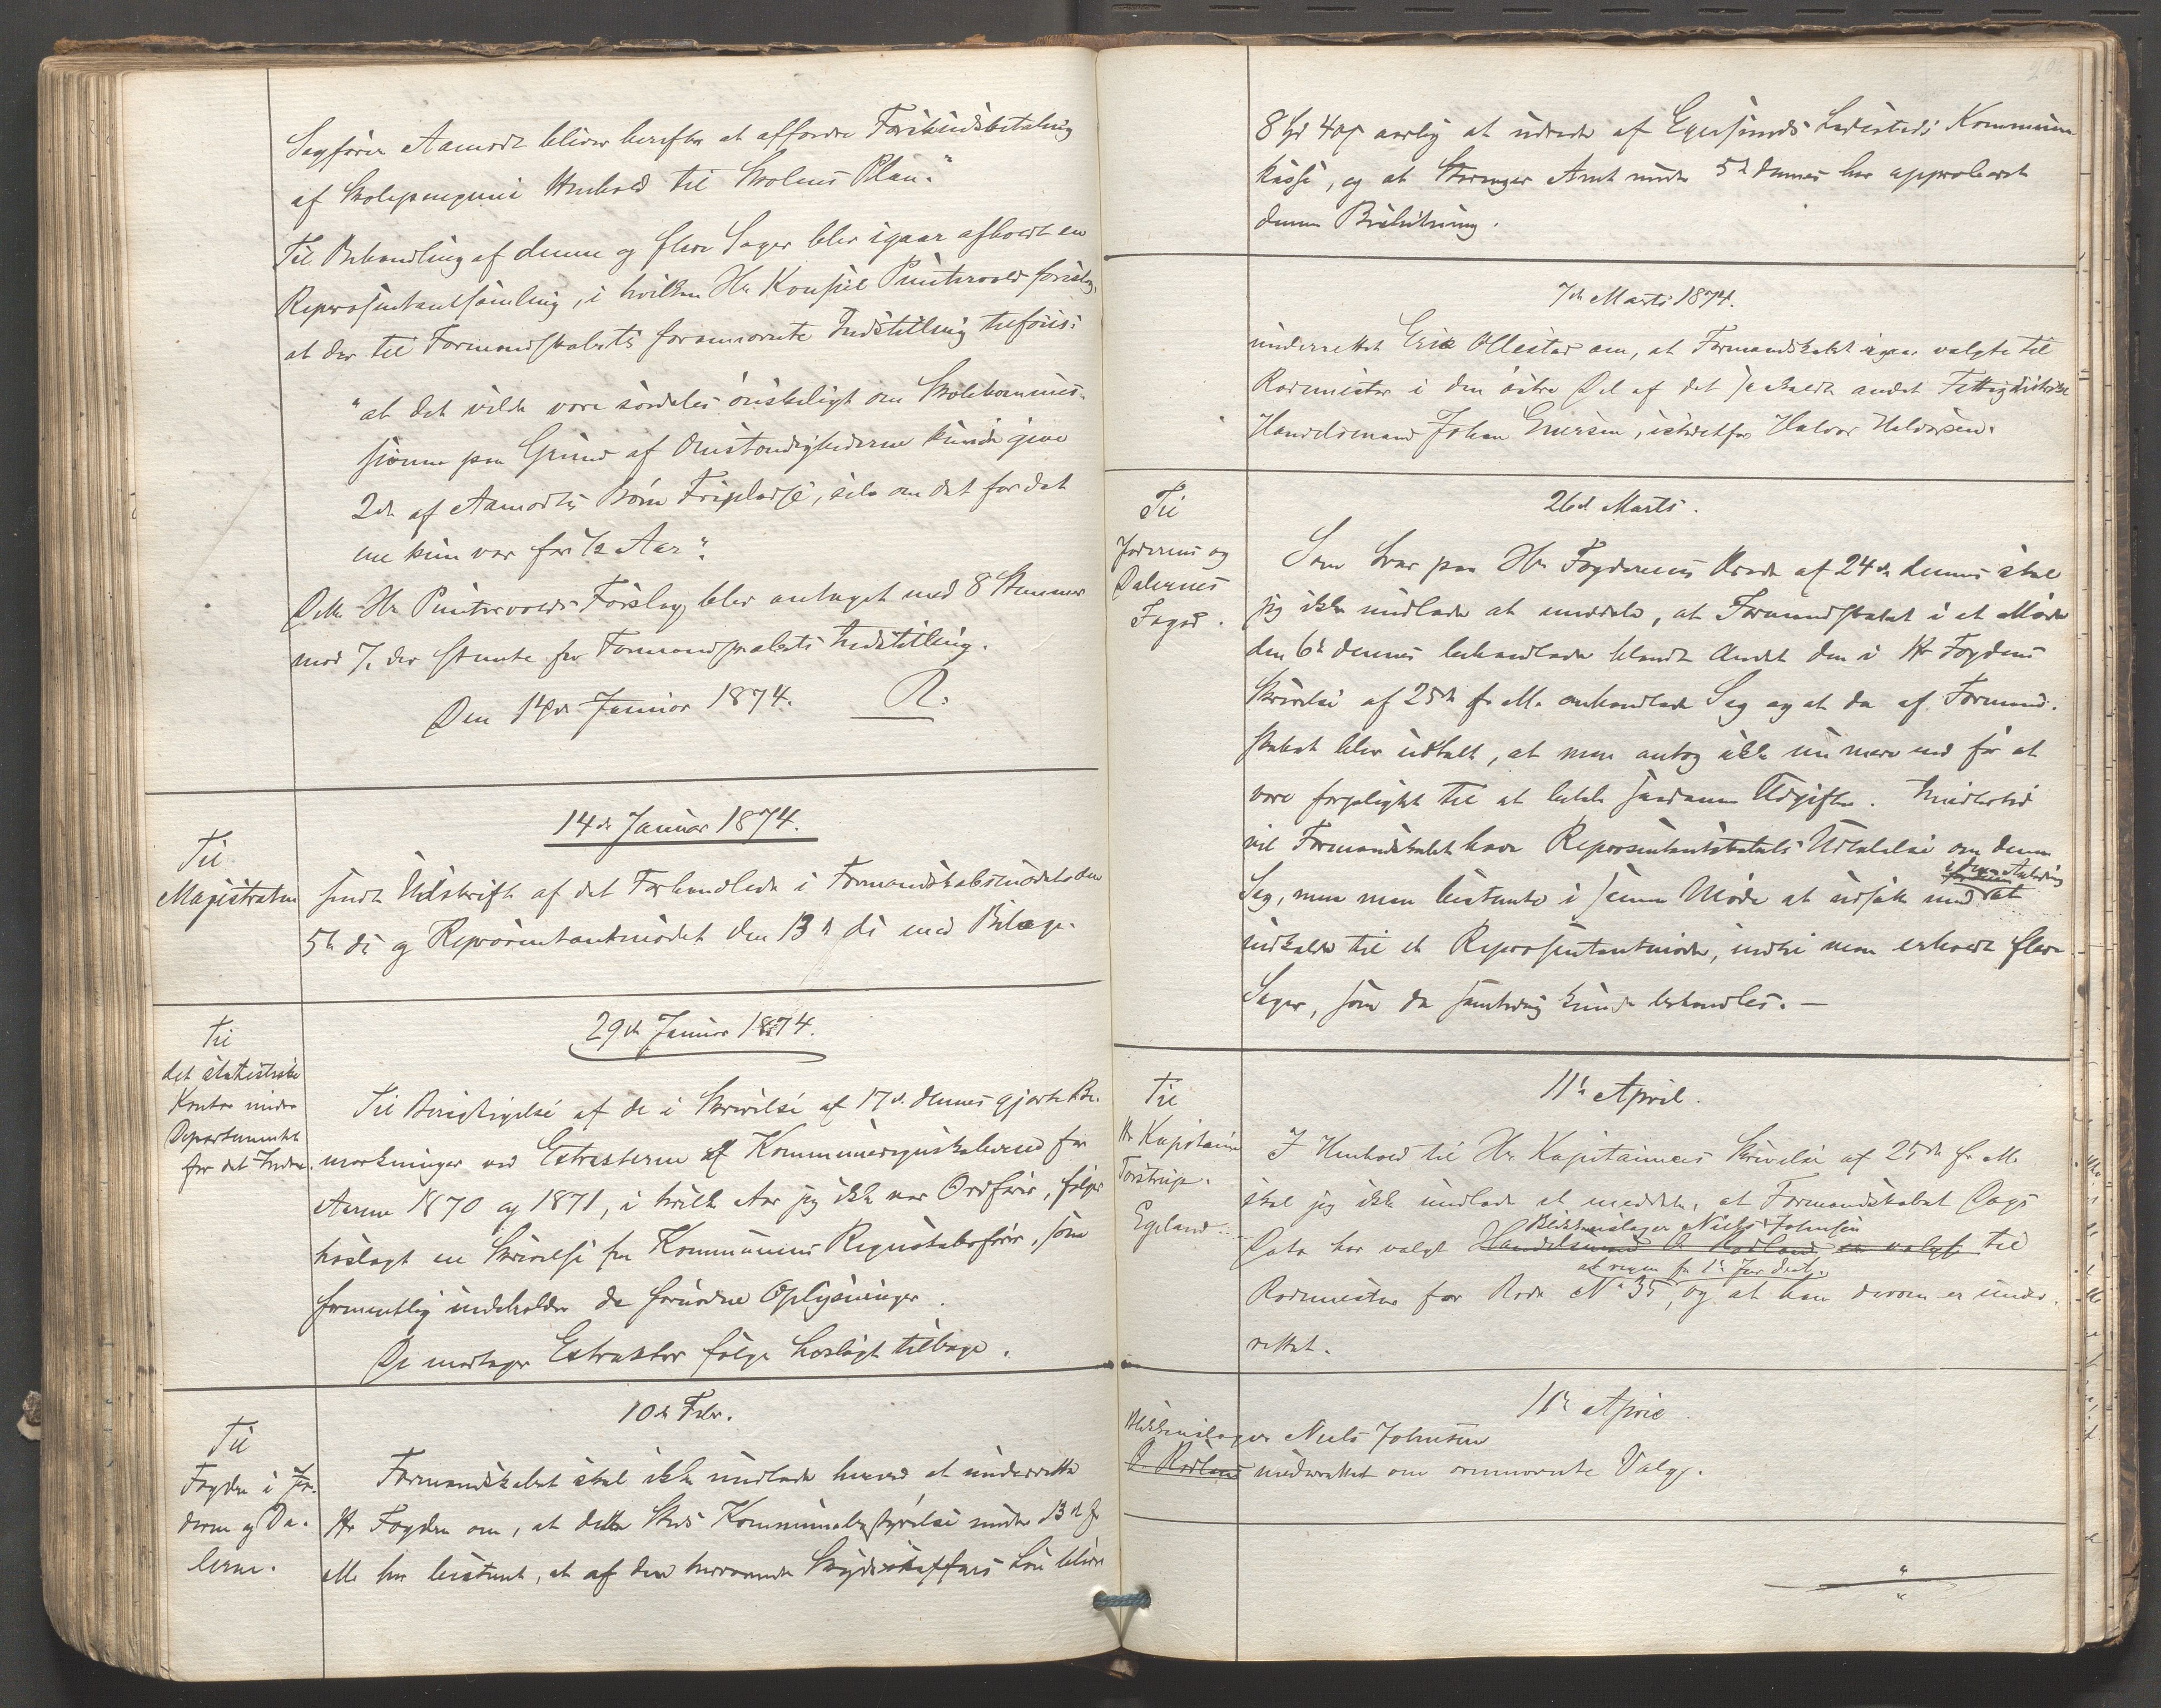 Sagfører Aamodt bliver herefter at affordre Forskudsbetaling
af Skolepengene i Henhold til Skolens Plan."
Til Behandling af denne og flere Sager blev igaar afholdt en
Repræsentantsamling, i hvilken Hr Konsul Puntervold foreslog,
at der til Formandskabets foranførte Indstilling tilføies:
"at det vilde være særdeles ønskeligt om Skolekommis-
sionen paa Grund af Omstændighederne kunde give
2de af Aamodts Børn Friplads, selv om det for det
ene kun var for 1/2 Aar".
Dette Hr Puntervolds Forslag blev antaget med 8 Stemmer
mod 7, der stemte for Formandskabets Indstilling.
Den 14de Januar 1874. R.
14de Januar 1874.
Til
Magistraten
sendt Udskrift af det Forhandlede i Formandskabsmødet den
5te ds og Repræsentantmødet den 13de ds med Bilage.
29de Januar 1874.
Til
det statistiske
Kontor under
Departementet
for det Indre.
Til Berigtigelse af de i Skrivelse af 17de dennes gjorte Be-
mærkninger ved Extrakterne af Kommuneregnskaberne for
Aarene 1870 og 1871, i hvilke Aar jeg ikke var Ordfører, følger
hoslagt en Skrivelse fra Kommunens Regnskabsfører, som
formentlig indeholder de fornødne Oplysninger.
De modtagne Extrakter følge hoslagt tilbage.
10de Febr.
Til
Fogden i Jæ-
deren og Da-
lerne.
Formandskabet skal ikke undlade herved at underrette
Hr Fogden om, at dette Steds Kommunebestyrelse under 13de f.
M. har bestemt, at af den herværende Skydsskaffers Løn bliver
8 Spd 40 s aarlig at udrede af Egersunds Ladesteds Kommune-
kasse, og at Stavanger Amt under 5te dennes har approberet
denne Beslutning.
7de Marts 1874.
underrettet Erik Ollestad om, at Formandskabet igaar valgte til
Rodemester i den østre Del af det saakaldte andet Fattigdistrikt
Handelsmand Johan Enersen, istedetfor Halvor Halvorsen.
26de Marts.
Til
Jæderens og
Dalernes
Foged.
Som Svar paa Hr Fogderiets Ærede af 24de dennes skal
jeg ikke undlade at meddele, at Formandskabet i et Møde
den 6te dennes behandlede blandt Andet den i Hr Fogdens
Skrivelse af 25de f. M. omhandlede Sag og at da af Formand-
skabet blev udtalt, at man antog ikke nu mere end før at
være forpligtet til at betale saadanne Udgifter. Imidlertid
vil Formandskabet have Repræsentantskabets Udtalelse om denne
i den Anledning
Sag, men man bestemte i samme Møde at udsætte med at
indkalde til et Repræsentantmøde, indtil man erholdt flere
Sager, som da samtidig kunde behandles. —
11te April.
Til
Hr Kapitaine
Torstrup.
Egeland
I Henhold til Hr Kapitainens Skrivelse af 25de f. M.
skal jeg ikke undlade at meddele, at Formandskabet Dags
Blikkenslager Niels Johnsen
Dato har valgt Handelsmand O. Rodland er valgt til
at regne fra 1te
Rodemester for Rode No 35, og at han derom er under-
rettet.
11te April
Blikkenslager Niels Johnsen
O. Rodland underrettet om ovennævnte Valg.